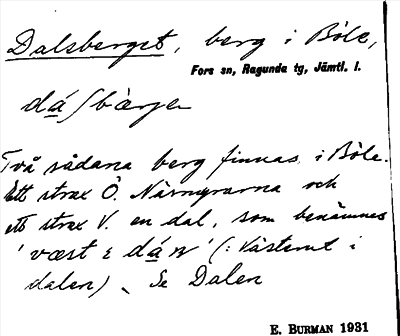 Dalsberget, berg i Böle,
Fors sn, Ragunda tg, Jämtl. l.
dáʃbàrjen
Två sådana berg finnas i Böle.
Ett strax Ö. Närmyrarna och
ett strax V. en dal, som benämnes
'væst ɛ dáɴ' (: västerut i
dalen). Se Dalen
E. BURMAN 1931